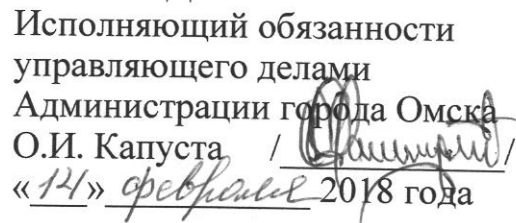 Исполняющий обязанности
управляющего делами
Администрации города Омска
О.И. Капуста / /
«14» февраля 2018 года